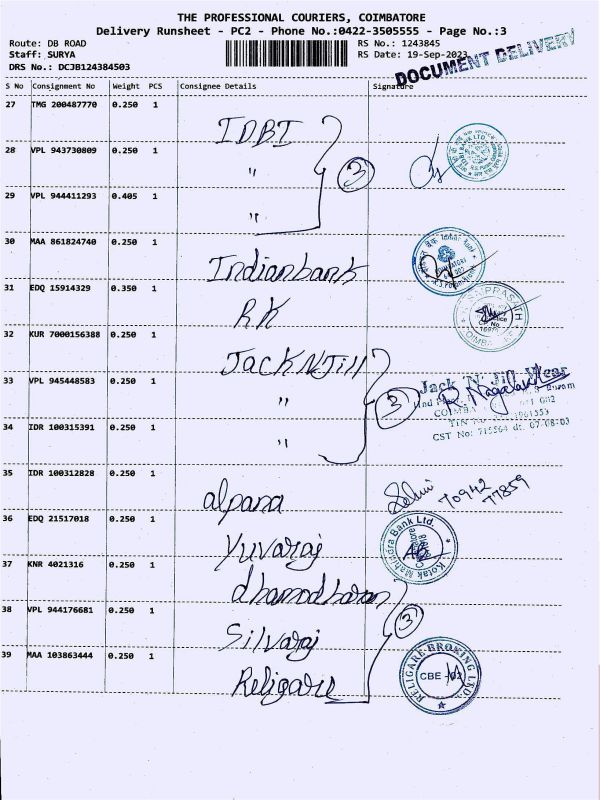 THE PROFESSIONAL COURIERS, COIMBATORE
Delivery Runsheet - PC2 - Phone No.:0422-3505555 - Page No.:3
Route: DB ROAD RS No.: 1243845
Staff: SURYA RS Date: 19-Sep-2023
DRS No.: DCJB124384503
DOCUMENT DELIVERY
S No Consignment No Weight PCS Consignee Details Signature
27 TMG 200487770 0.250 1
IDBI
28 VPL 943730809 0.250 1
" 3
29 VPL 944411293 0.405 1
"
30 MAA 861824740 0.250 1
Indianbank
31 EDQ 15914329 0.350 1
RK
32 KUR 7000156388 0.250 1
Jack N Jill
33 VPL 945448583 0.250 1
" 3
Jack 'N' Jill Wear
COIMBA
CST No: 715564 dt. 07.08:03
34 IDR 100315391 0.250 1
"
35 IDR 100312828 0.250 1
alpana
70942
77859
36 EDQ 21517018 0.250 1
Yuvaraj
Kotak Mahindra Bank Ltd.
37 KNR 4021316 0.250 1
dhamodharan
38 VPL 944176681 0.250 1
Silvaraj 3
39 MAA 103863444 0.250 1
Religare
RELIGARE BROKING LTD.
CBE -02